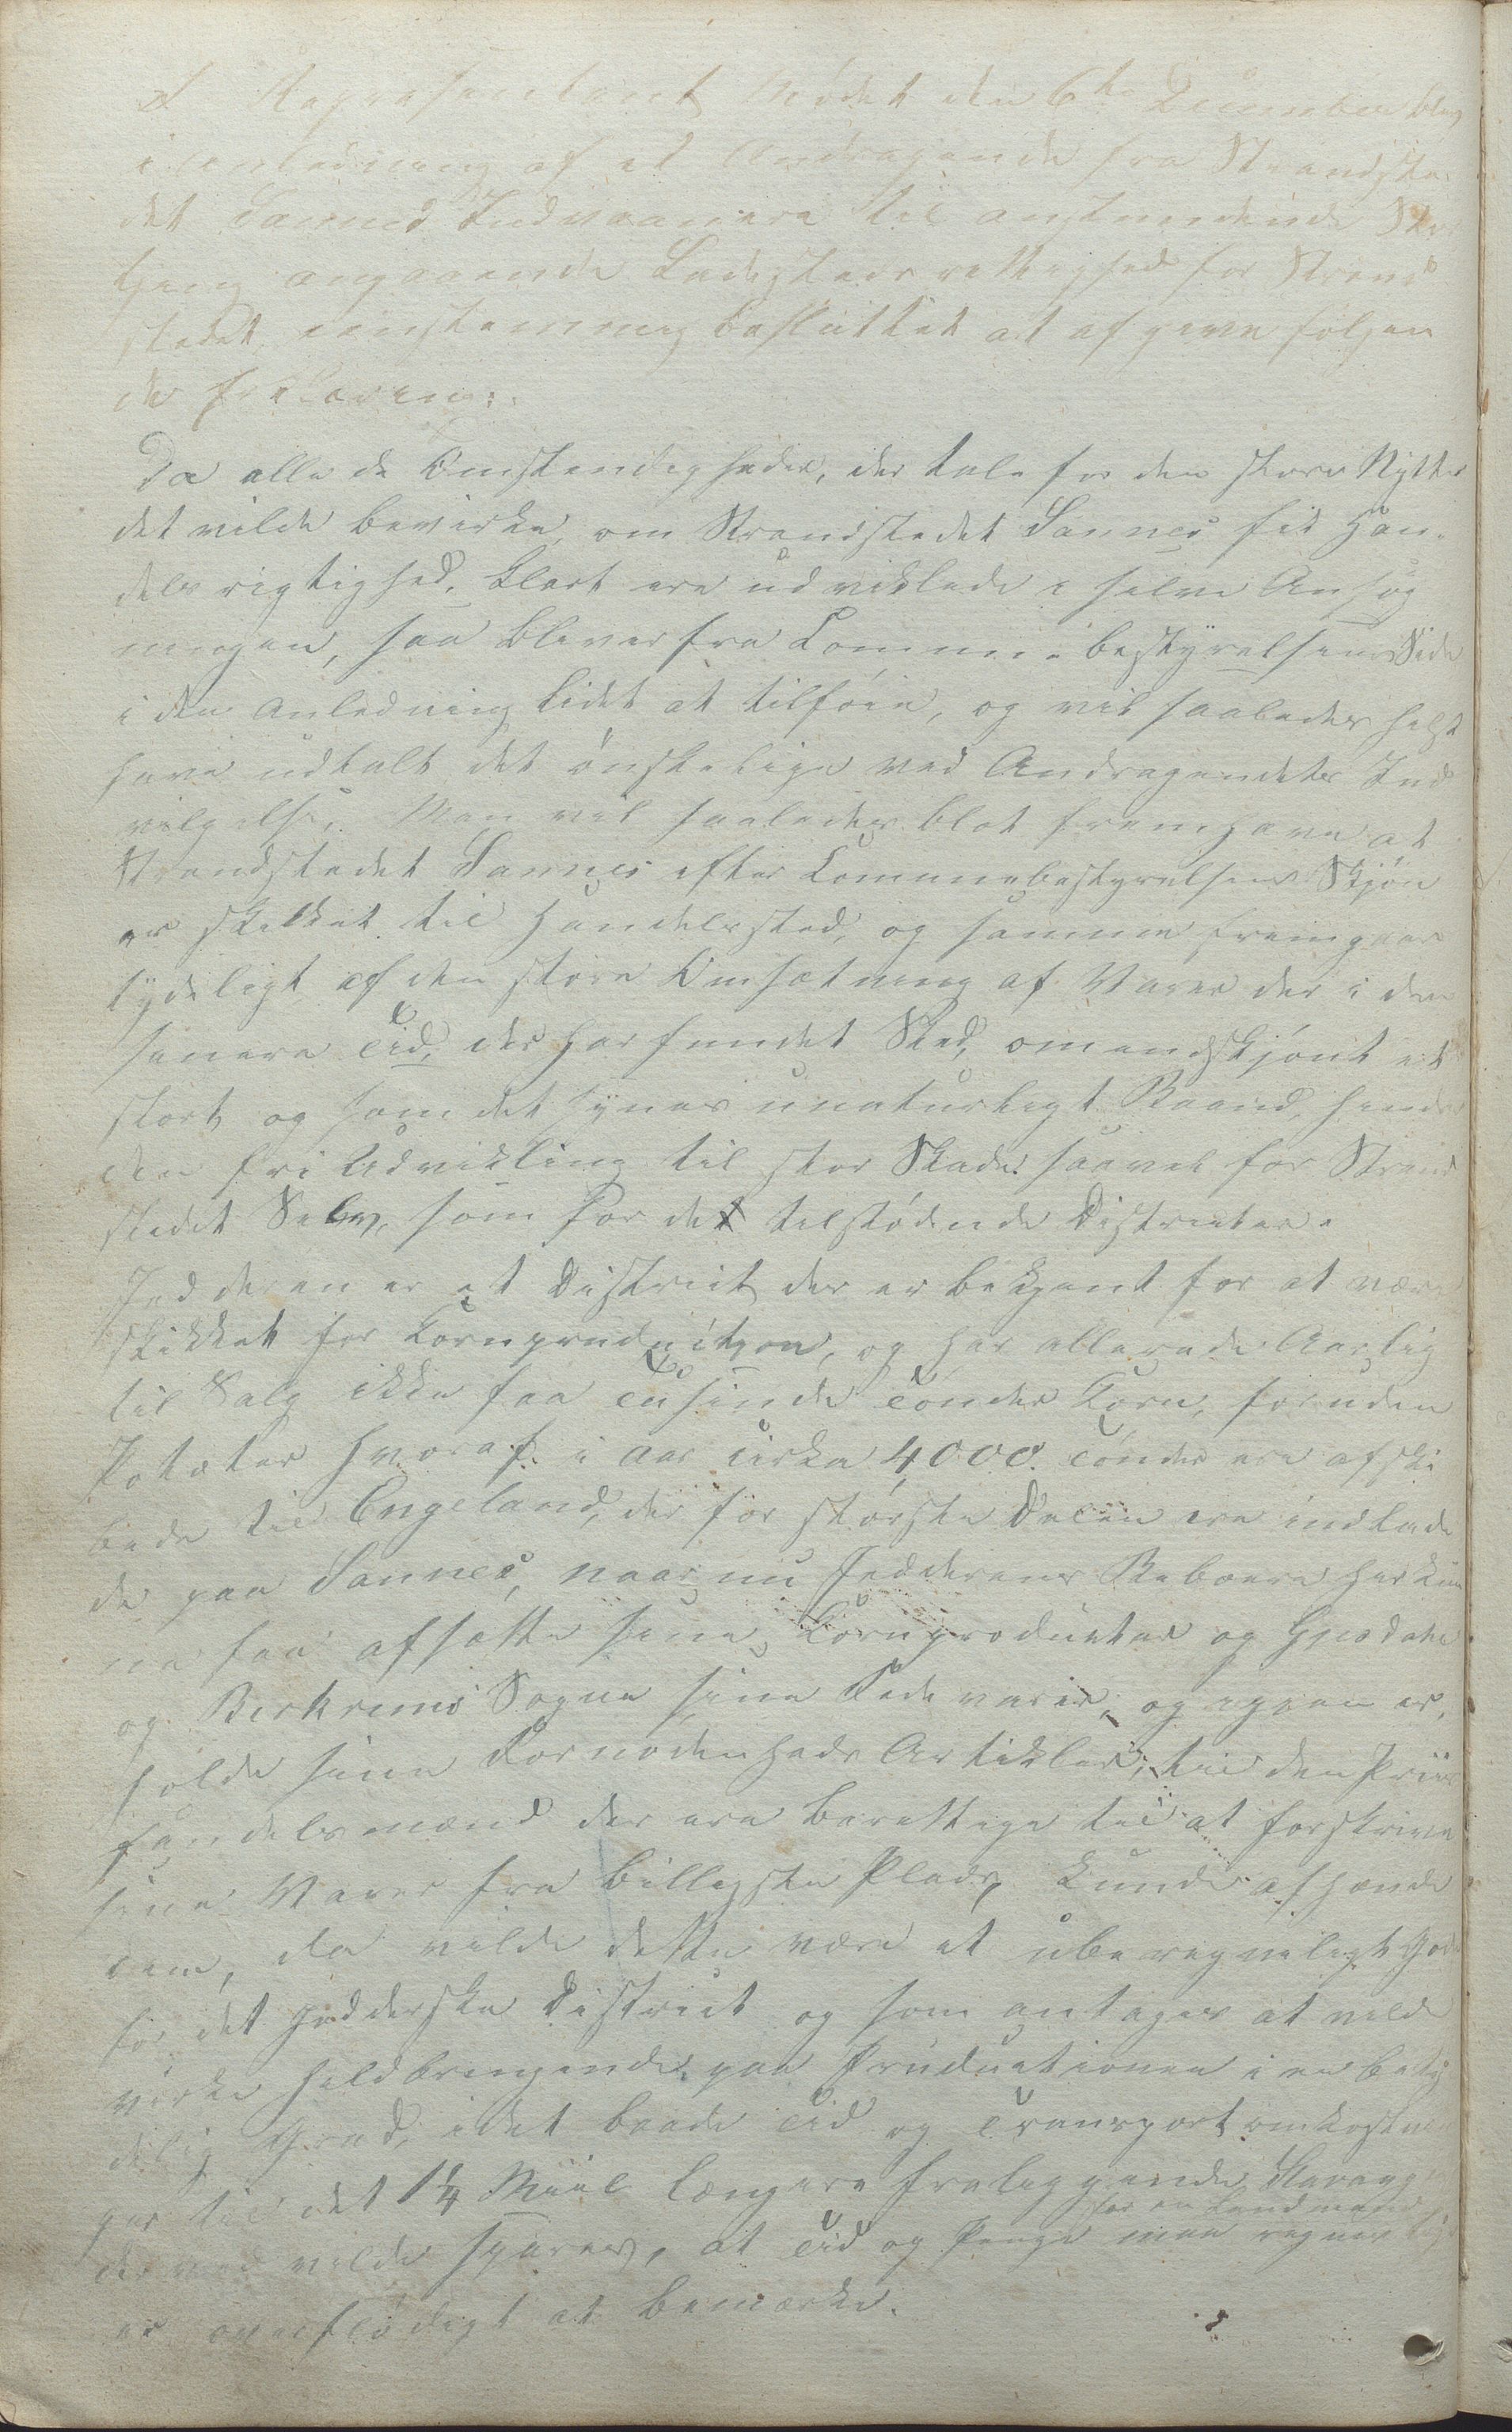 I Repræsentant Mödet den 6te December blev
i anledning af et Andragende fra Strandste-
det Sannes Indvaanere til anstundende Stor
thing angaaende Ladestedsrettighed for Strand
stedet eenstemmig besluttet at afgive fölgen
de
Da alle de Omstendigheder, der tale for den store Nytte
det vilde bevirke, om Strandstedet Sannes fik Han-
delsrigtighed, klart ere udviklede i selve Ansög
ningen, saa bliver fra Commune bestyrelsens Side
i den Anledning lidet at tilföie, og vil saaledes helst
have udtalt det önskelige ved Andragendets Ind
vilgelse. Man vil saaledes blot fremhæve at
Strandstedet Sannes efter Communebestyrelsens Skjön
er skikket til Handelssted, og samme fremgaar
tydeligt af den store Omsætning af Varer der i den
senere Tid, der har fundet Sted, omendskjönt et
stort og som det synes unaturligt Baand, hindrer
den fri Udvikling til stor Skade saavel for Strand
stedet Selv, som for det tilstödende Districter.
Jedderen er et District der er bekjent for at være
skikket for Kornproduction, og har allerede Aarlig
til Salg ikke faa Tusinde Tönder Korn, foruden
Poteter hvoraf i Aar cirka 4000 Tönder ere afski
bede til Engeland, der for störste Delen ere indlade
de paa Sannes, naar nu Jedderens Beboere her kun
ne faa afsætte sine Kornprodukter og Gjesdahls
og Birkrems Sogne sine Fede varer, og igjen er,
holde sine Fornödenheds Artikler, til den Priis
Handelsmænd der ere berettige til at forskrive
sine Varer fra billigste Plads, kunde afhænde
dem, da vilde dette være et uberegneligt Gode
for det Jedderske District og som antages at vilde
virke heldbringende paa Productionen i en bety
delig Grad, idet baade Tid og Transportomkostnin
ger til det 1¼ Miil længere fraliggende Stavanger
for en Landmand
derved vilde spares, at Tid og Penge man regner
er overflödigt at bemærke.